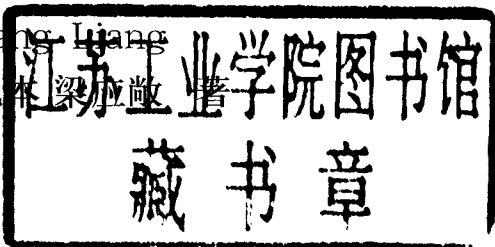 ang Liang
梁应敞 著
江苏工业学院图书馆
藏书章